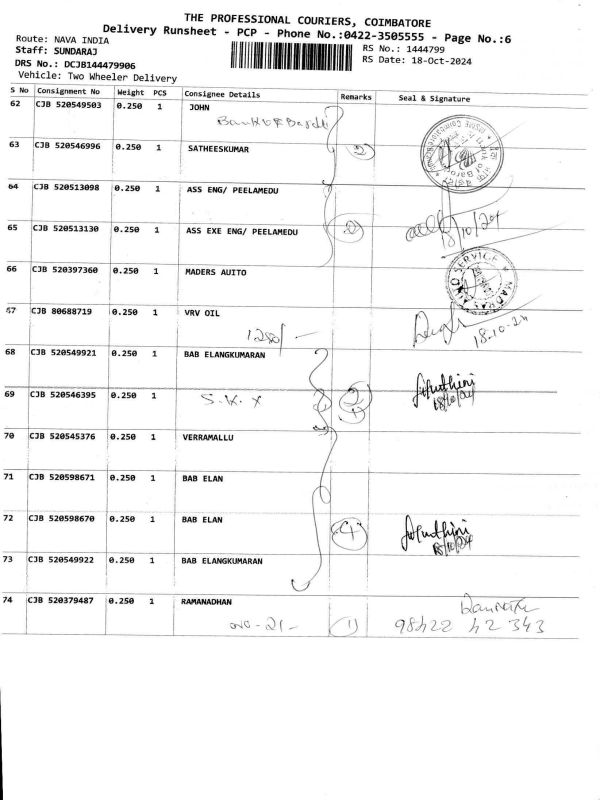 THE PROFESSIONAL COURIERS, COIMBATORE
Delivery Runsheet - PCP - Phone No.:0422-3505555 - Page No.:6
Route: NAVA INDIA
RS No.: 1444799
Staff: SUNDARAJ
RS Date: 18-Oct-2024
DRS No.: DCJB144479906
Vehicle: Two Wheeler Delivery
S No Consignment No Weight PCS Consignee Details Remarks Seal & Signature
62 CJB 520549503 0.250 1 JOHN
63 CJB 520546996 0.250 1 SATHEESKUMAR 2
64 CJB 520513098 0.250 1 ASS ENG/ PEELAMEDU
65 CJB 520513130 0.250 1 ASS EXE ENG/ PEELAMEDU 2 18/10/24
66 CJB 520397360 0.250 1 MADERS AUITO
67 CJB 80688719 0.250 1 VRV OIL
18-10-24
68 CJB 520549921 0.250 1 BAB ELANGKUMARAN
69 CJB 520546395 0.250 1 2
S.K. X 1 18/10/24
70 CJB 520545376 0.250 1 VERRAMALLU
71 CJB 520598671 0.250 1 BAB ELAN
72 CJB 520598670 0.250 1 BAB ELAN 4 18/10/24
73 CJB 520549922 0.250 1 BAB ELANGKUMARAN
74 CJB 520379487 0.250 1 RAMANADHAN
1 98422 42 343